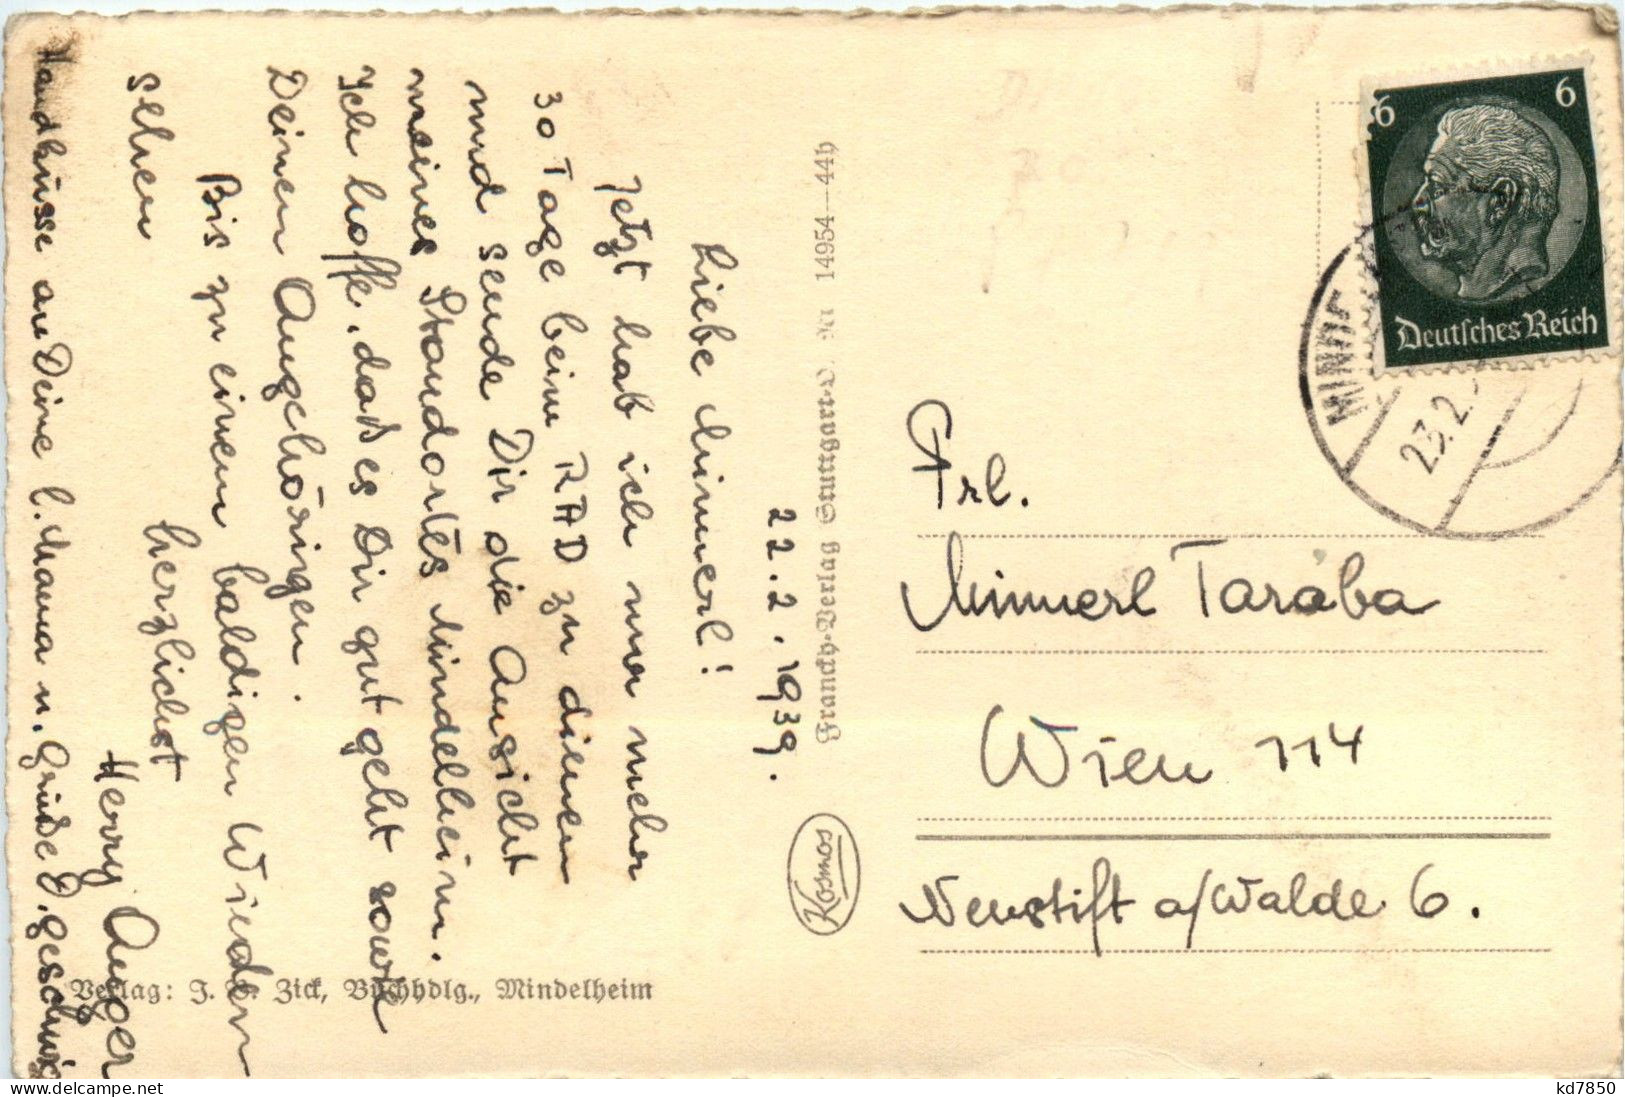 22.2.1939.
Liebe Minnerl!
Jetzt hab ich nur mehr
30 Tage beim RAD zu dienen
und sende Dir die Aussicht
meines Standortes Mindelheim.
Ich hoffe, daß es Dir gut geht sowie
Deinen Angehörigen.
Bis zu einem baldigen Wieder
sehen
herzlichst
Herry Auger
Handküsse an Deine l. Mama u. Grüße D. Geschwis
Franckh-Verlag Stuttgart-O. 14954—44b
Kosmos
Verlag: J. Zick, Buchhdlg., Mindelheim
6
6
Deutsches Reich
MINDE
23.2.
Frl.
Minnerl Taraba
Wien 114
Neustift a/Walde 6.